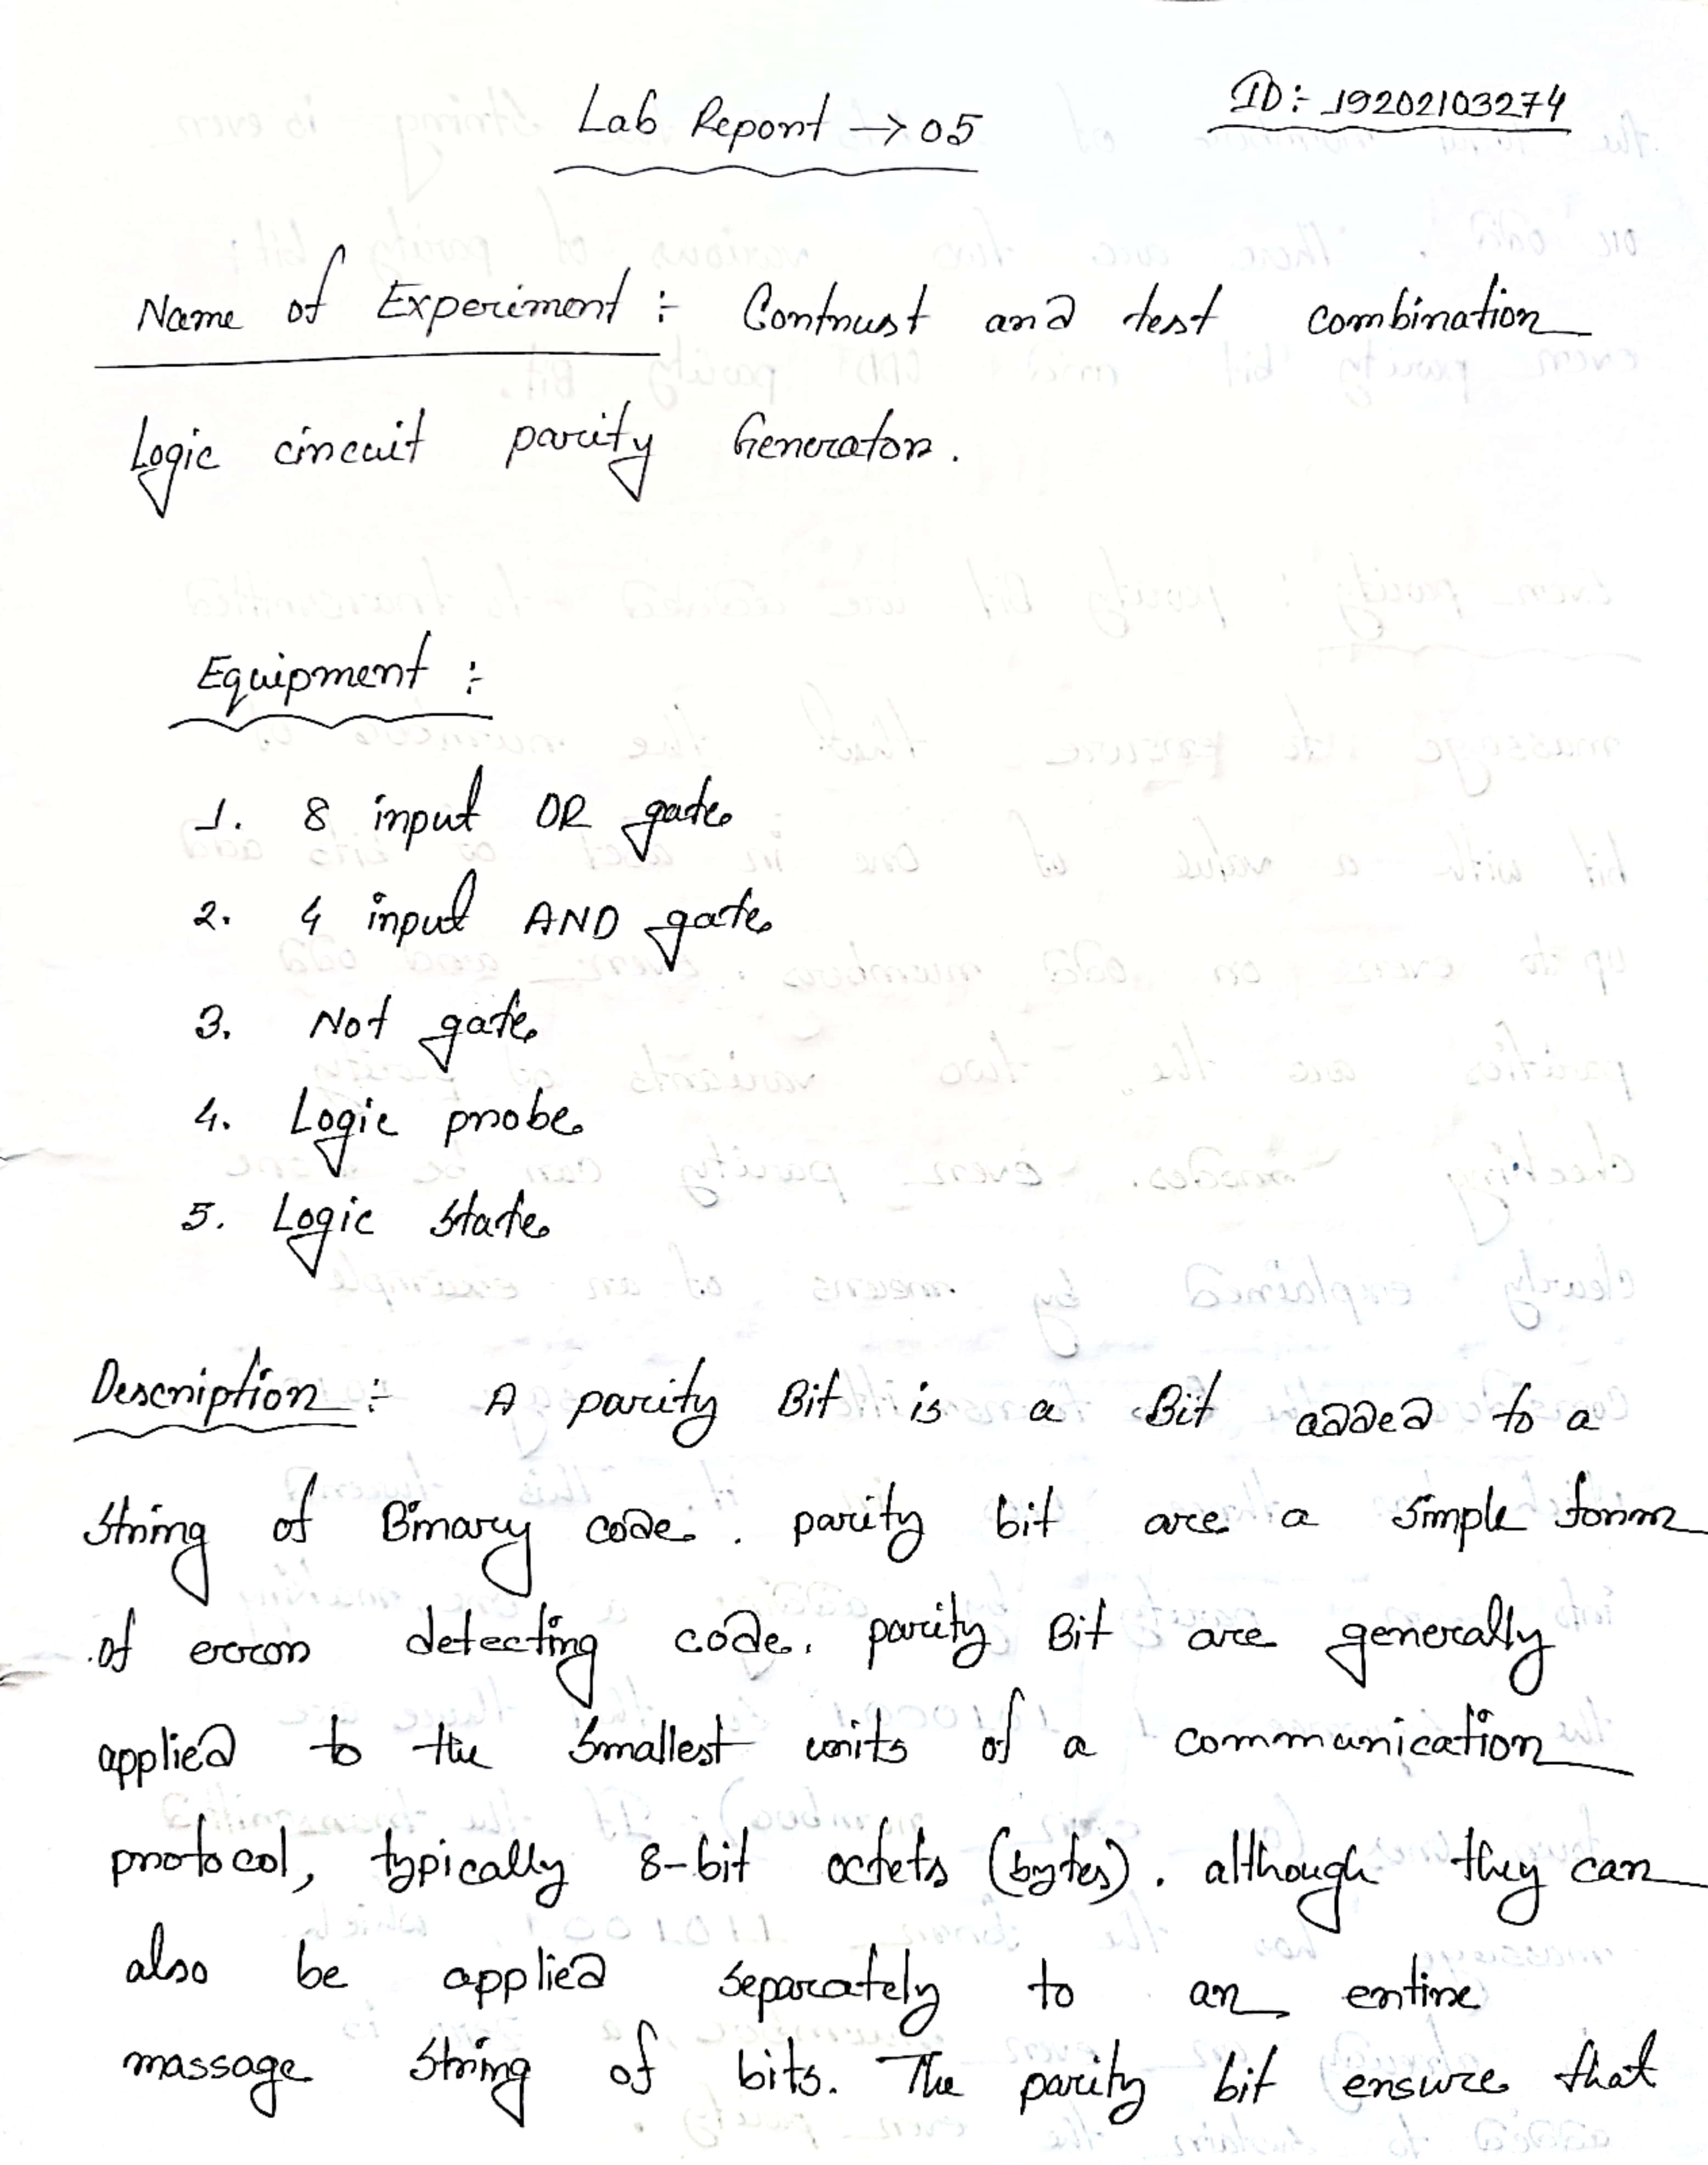 Lab Report → 05
ID:- 19202103274
Name of Experiment :- Contrust and test combination
Logic circuit parity Generator.
Equipment :-
1. 8 input OR gate
2. 4 input AND gate
3. Not gate
4. Logic probe
5. Logic State
Description :- A parity Bit is a Bit added to a
string of Binary code. parity bit are a simple form
of error detecting code. parity Bit are generally
applied to the smallest units of a communication
protocol, typically 8-bit octets (bytes). although they can
also be applied separately to an entire
massage string of bits. The parity bit ensure that